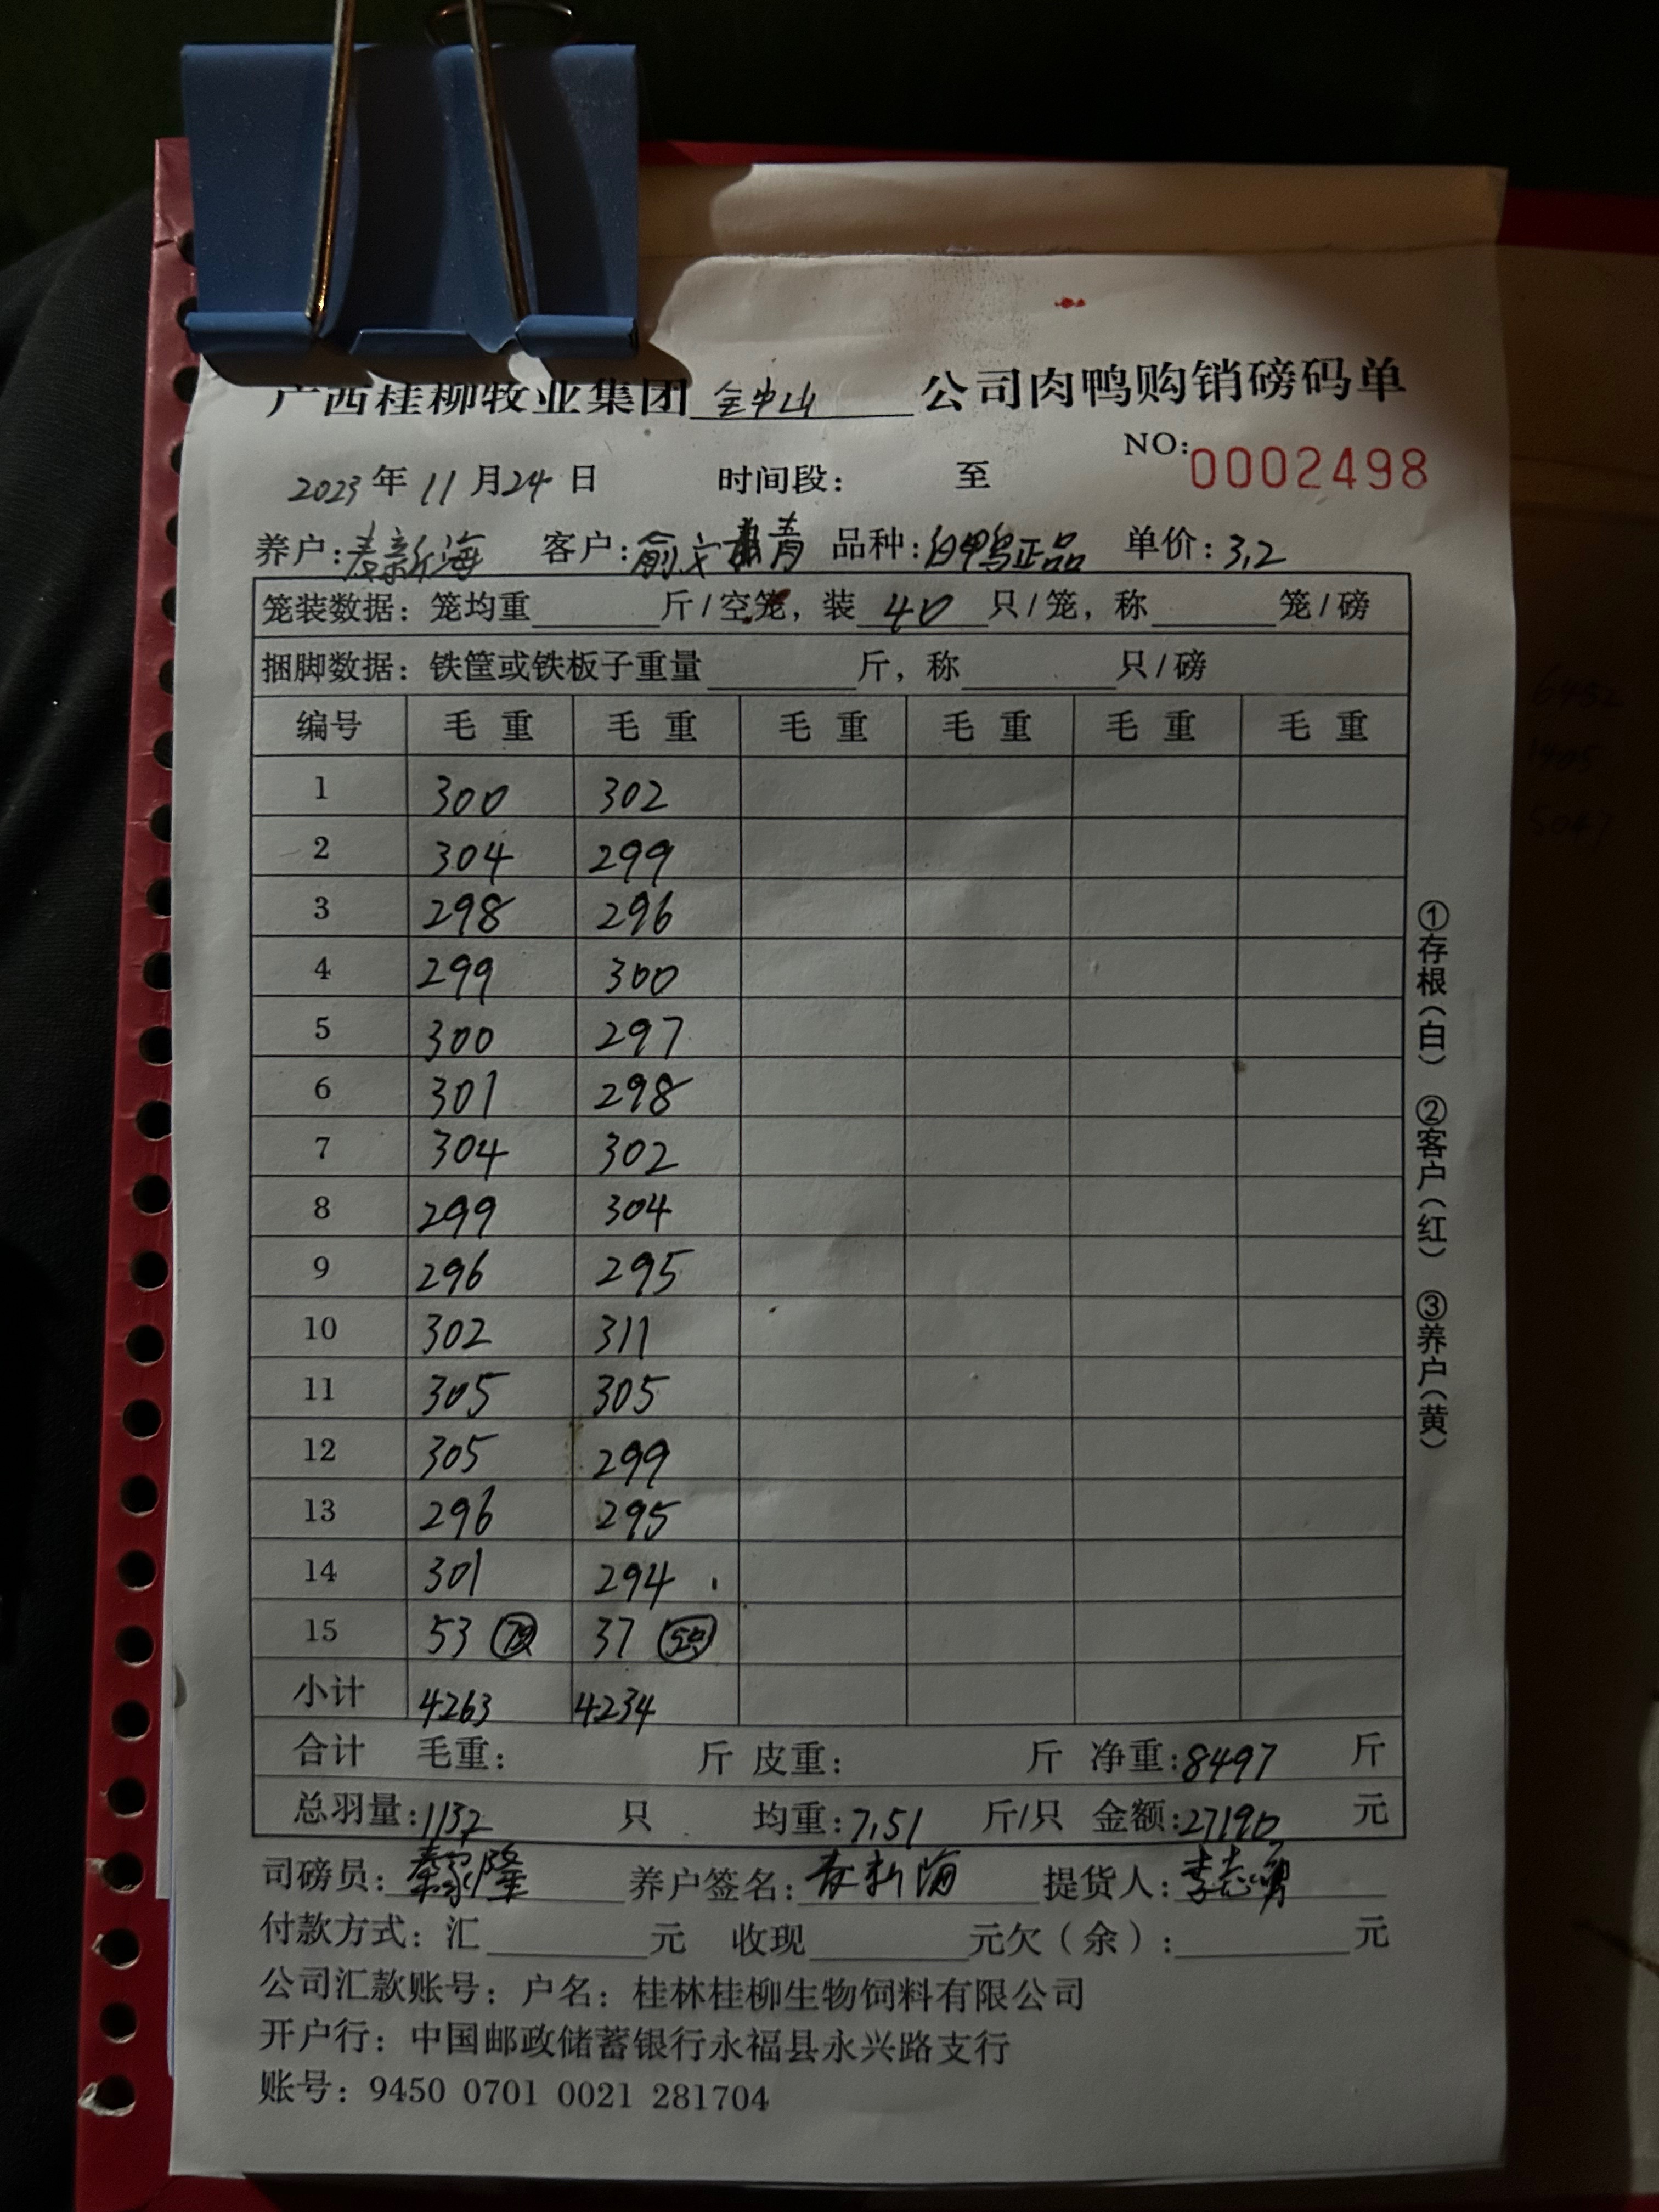 广西桂柳牧业集团 金中山 公司肉鸭购销磅码单
NO:0002498
2023年11月24日 时间段: 至
养户:麦新海 客户:俞文青 品种:白鸭正品 单价:3.2
笼装数据:笼均重 斤/空笼,装 40 只/笼,称 笼/磅
捆脚数据:铁筐或铁板子重量 斤,称 只/磅
编号 毛重 毛重 毛重 毛重 毛重 毛重
1 300 302
2 304 299
3 298 296
4 299 300
5 300 297
6 301 298
7 304 302
8 299 304
9 296 295
10 302 311
11 305 305
12 305 299
13 296 295
14 301 294
15 53 37
小计 4263 4234
合计 毛重: 斤 皮重: 斤 净重:8497 斤
总羽量:1132 只 均重:7.51 斤/只 金额:27190 元
司磅员:秦家隆 养户签名:麦新海 提货人:李志勇
付款方式:汇 元 收现 元欠(余): 元
公司汇款账号:户名:桂林桂柳生物饲料有限公司
开户行:中国邮政储蓄银行永福县永兴路支行
账号:9450 0701 0021 281704
①存根(白) ②客户(红) ③养户(黄)